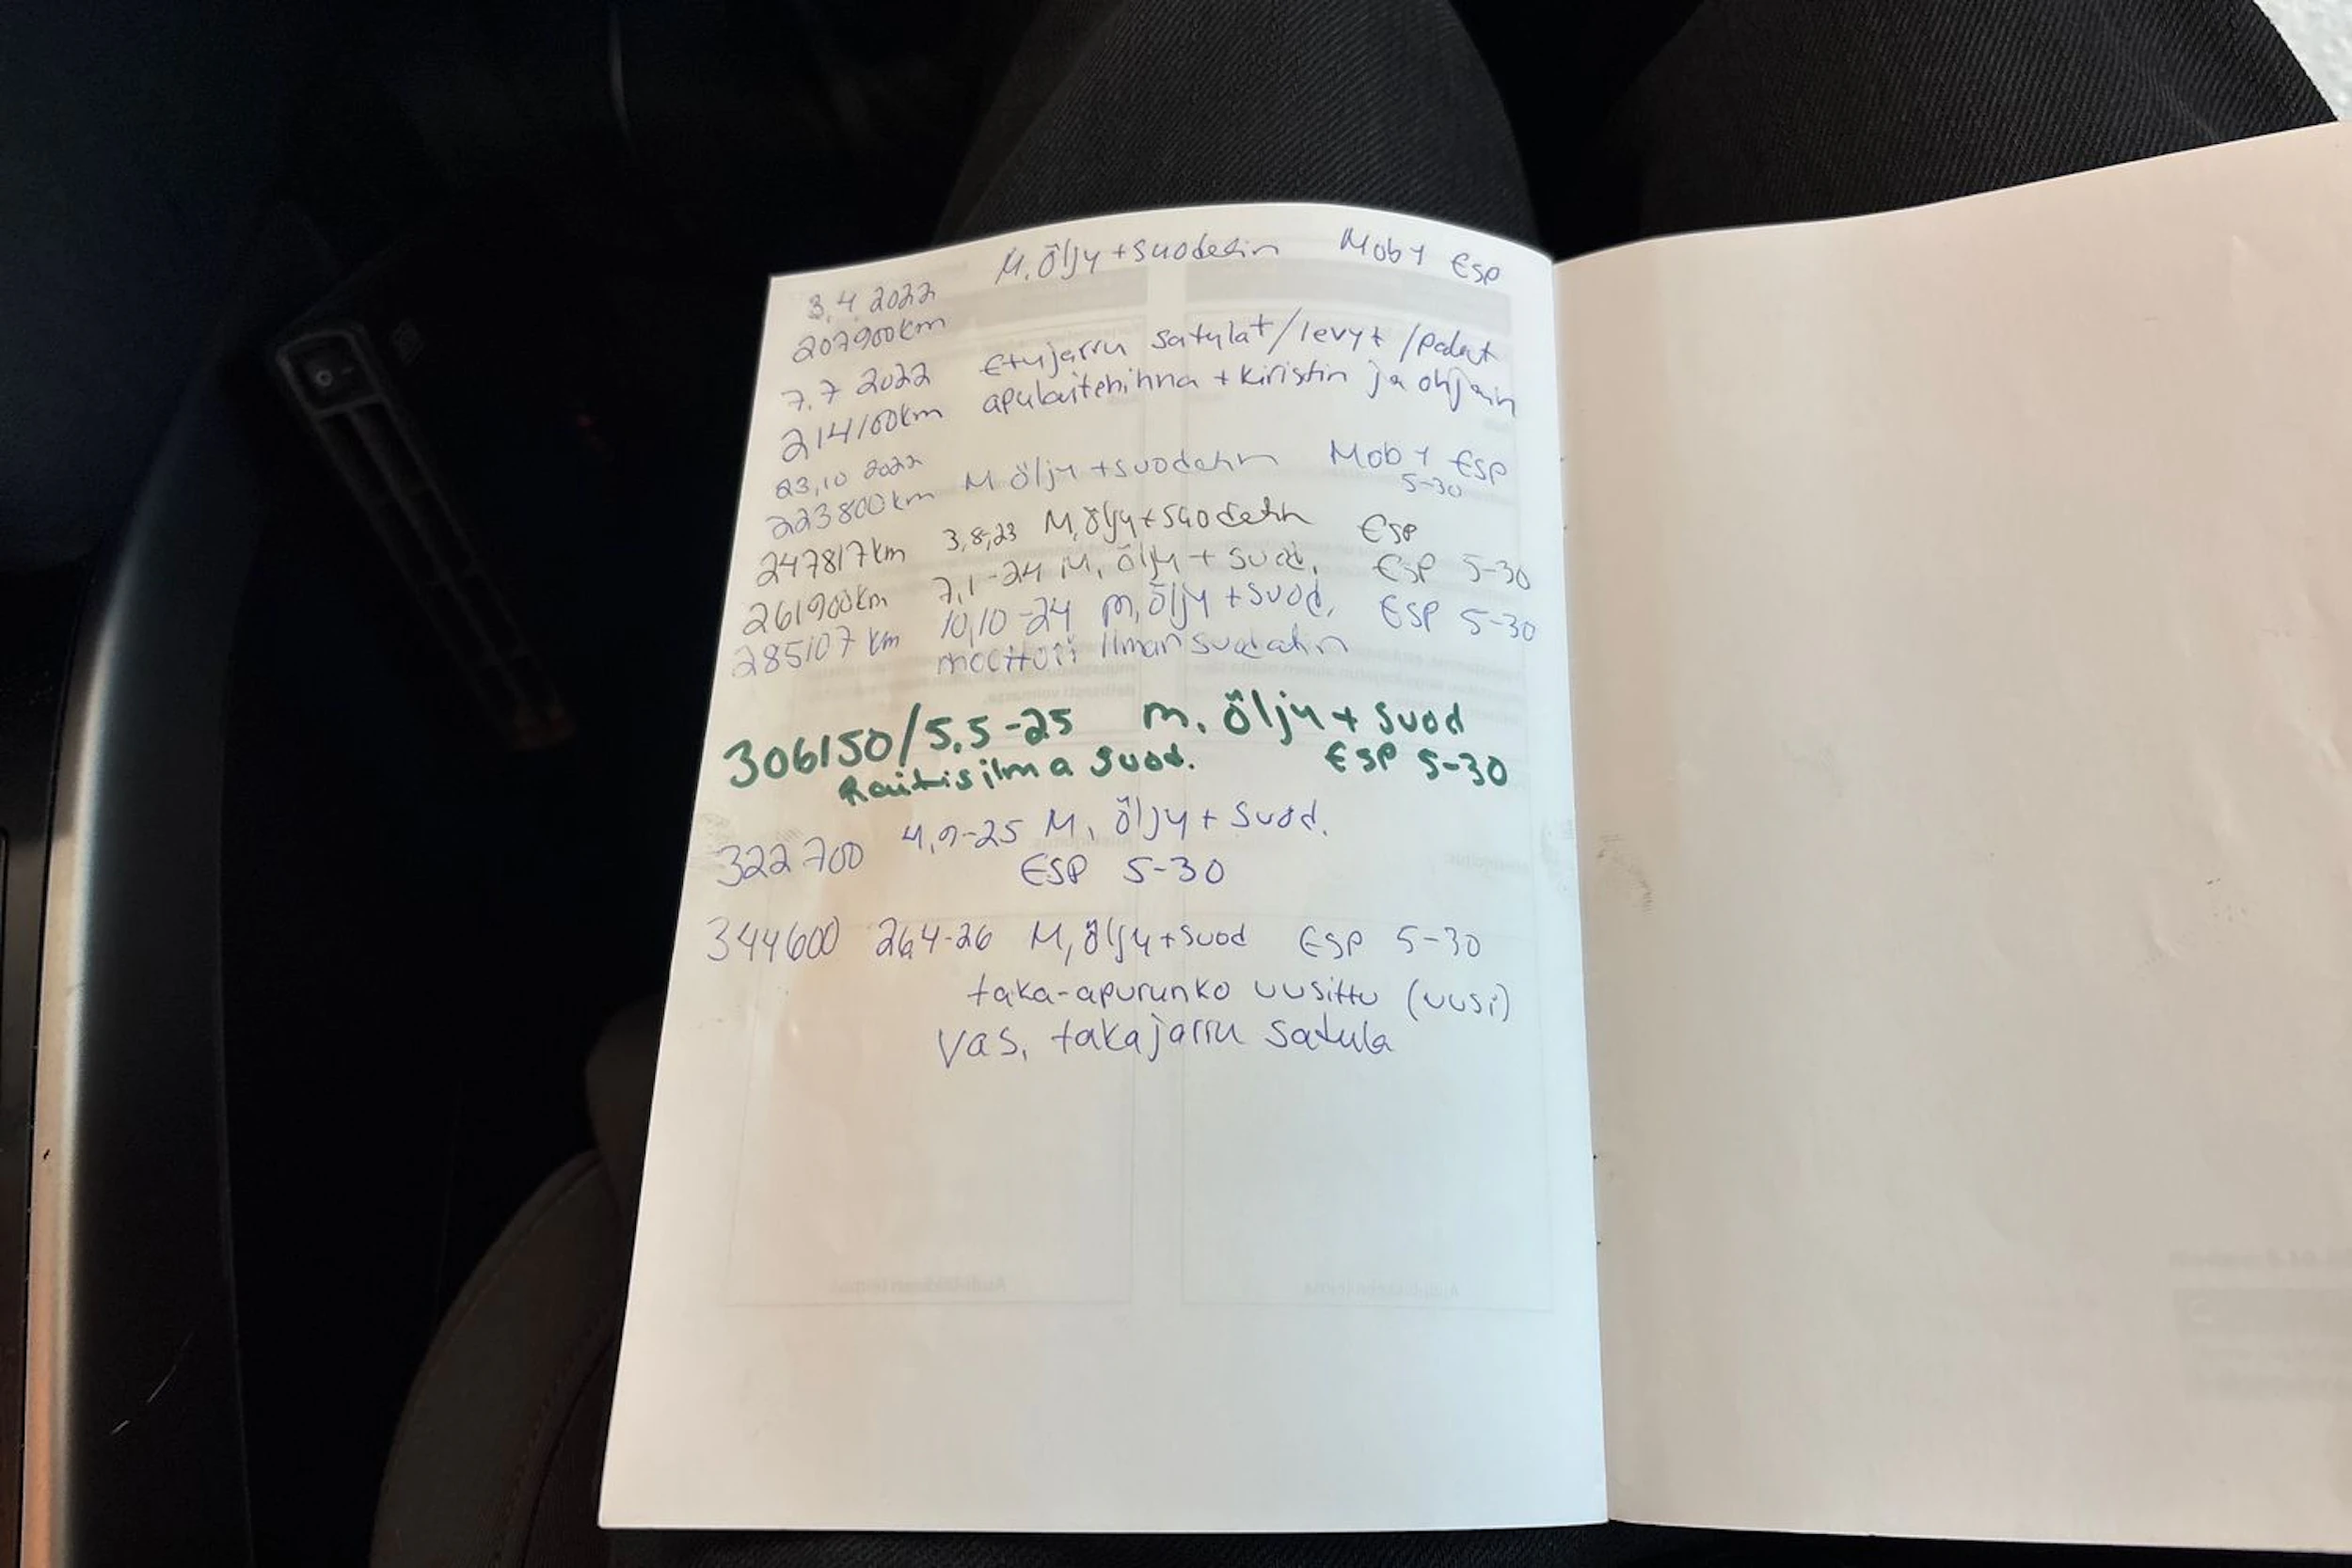 M. Öljy + suodatin Mob 1 ESP
3.4 2022
207900km
7.7 2022 etujarru satulat/levyt/palat
214160km apulaitehihna + kiristin ja ohjain
23,10 2022
223800km M öljy + suodatin Mob 1 ESP
5-30
247817km 3,8,23 M, öljy + suodatin ESP
261900km 7,1-24 M, öljy + suod, ESP 5-30
285107 km 10,10-24 m, öljy + suod, ESP 5-30
moottori ilmansuodatin
306150/5.5-25 m. öljy + suod
Raitisilma suod. ESP 5-30
322700 4,9-25 M, öljy + suod.
ESP 5-30
344600 26,4-26 M, öljy + suod ESP 5-30
taka-apurunko uusittu (uusi)
vas, takajarru satula